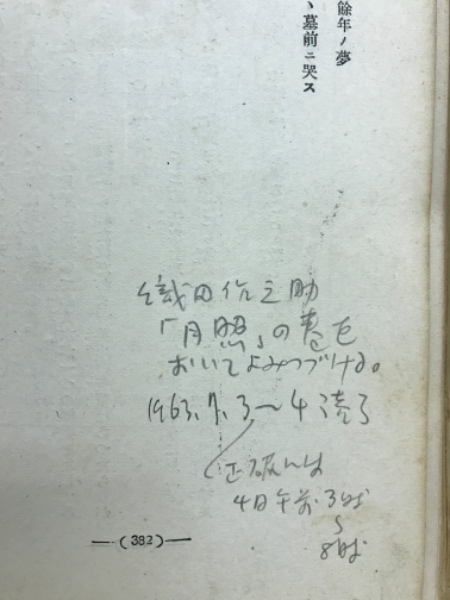 餘年ノ夢
、墓前ニ哭ス
織田作之助
「月照」の巻を
おいてよみつづける。
1963.7.3〜4読了
正確には
4日午前3時
〜
8時
—(382)—